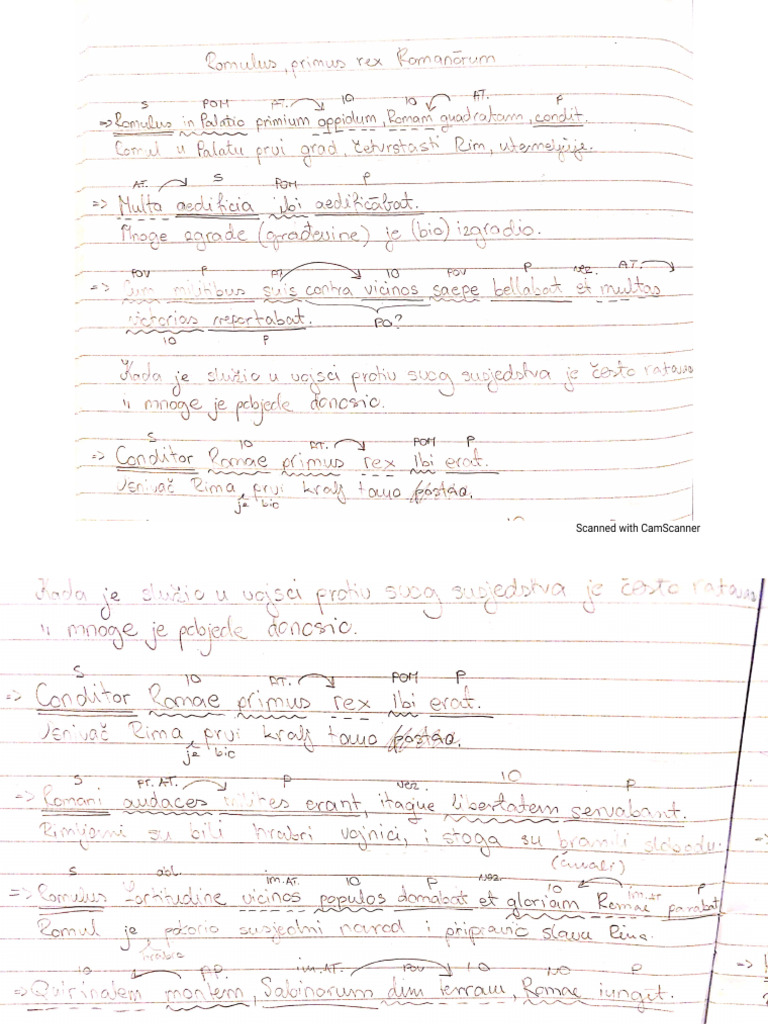 Romulus, primus rex Romanōrum
S POM AT. IO IO AT. P
=> Romulus in Palatio primium oppidum, Romam quadratam, condit.
Romul u Palatu prvi grad, četvrstasti Rim, utemeljuje.
AT. S POM P
=> Multa aedificia ibi aedificābat.
Mnoge zgrade (građevine) je (bio) izgradio.
POV P IO POV P vez. AT.
=> Cum militibus suis contra vicinos saepe bellabat et multas
victorias reportabat. PO?
IO P
Kada je služio u vojsci protiv svog susjedstva je često ratovao
i mnoge je pobjede donosio.
S IO AT. POM P
=> Conditor Romae primus rex ibi erat.
Osnivač Rima, prvi kralj tamo
je bio
Scanned with CamScanner
Kada je služio u vojsci protiv svog susjedstva je često ratovao
i mnoge je pobjede donosio.
S IO AT. POM P
=> Conditor Romae primus rex ibi erat.
Osnivač Rima, prvi kralj tamo
je bio
S pr. AT. P vez. IO P
=> Romani audaces milites erant, itaque libertatem servabant.
Rimljani su bili hrabri vojnici, i stoga su branili slobodu.
(čuvali)
S abl. im. AT. IO P vez. IO im. AT P
=> Romulus fortitudine vicinos populos domabat et gloriam Romae parabat
Romul je pokorio susjedni narod i pripravio slavu Rima.
hrabro
IO P.P. im. AT. POV IO NO P
=> Quirinalem montem, Sabinorum dim terram, Romae iungit.